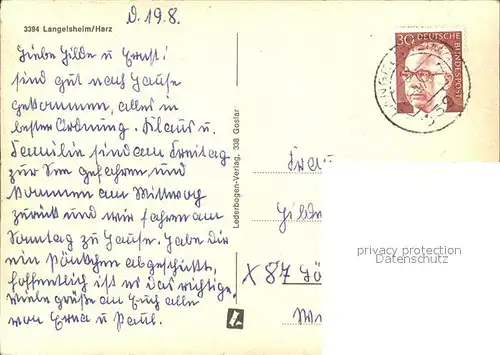 D. 19.8.
3394 Langelsheim/Harz
Liebe Hilde u. Ernst!
sind gut nach Hause
gekommen, alles in
bester Ordnung. Klaus u.
Familie sind am Freitag
zur See gefahren, und
kommen am Mittwoch
zurück und wir fahren am
Sonntag zu Hause. Habe dir
ein Päckchen abgeschickt,
hoffentlich ist es das richtige.
Viele Grüße an Euch alle
von Erna u. Paul.
Lederbogen-Verlag, 338 Goslar
30 DEUTSCHE BUNDESPOST
Frau
Hilde
X 87 Lö
privacy protection
Datenschutz